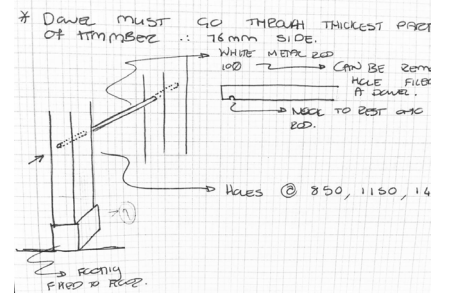 * DOWEL MUST GO THROUGH THICKEST PART
OF TIMMBER ∴ 76mm SIDE.
WHITE METAL ROD
10Ø
CAN BE REMO
HOLE FILED
A DOWEL.
NOCK TO REST ONTO
ROD.
HOLES @ 850, 1150, 14
FOOTING
FIXED TO FLOOR.